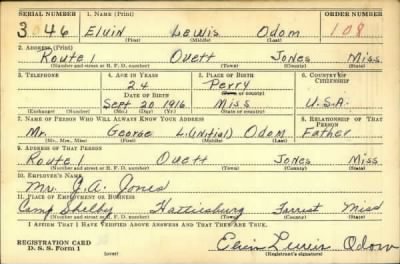 SERIAL NUMBER 1. NAME (Print) ORDER NUMBER
3046 Elvin Lewis Odom 108
(First) (Middle) (Last)
2. ADDRESS (Print)
Route 1 Ovett Jones Miss.
(Number and street or R. F. D. number) (Town) (County) (State)
3. TELEPHONE 4. AGE IN YEARS 5. PLACE OF BIRTH 6. COUNTRY OF CITIZENSHIP
24 Perry
DATE OF BIRTH (Town or county)
Sept 20 1916 Miss U.S.A.
(Exchange) (Number) (Mo.) (Day) (Yr.) (State or country)
7. NAME OF PERSON WHO WILL ALWAYS KNOW YOUR ADDRESS 8. RELATIONSHIP OF THAT PERSON
Mr. George L.(initial) Odom Father
(Mr., Mrs., Miss) (First) (Middle) (Last)
9. ADDRESS OF THAT PERSON
Route 1 Ovett Jones Miss
(Number and street or R. F. D. number) (Town) (County) (State)
10. EMPLOYER'S NAME
Mr. J.A. Jones
11. PLACE OF EMPLOYMENT OR BUSINESS
Camp Shelby Hattiesburg Forrest Miss
(Number and street or R. F. D. number) (Town) (County) (State)
I AFFIRM THAT I HAVE VERIFIED ABOVE ANSWERS AND THAT THEY ARE TRUE.
REGISTRATION CARD
D. S. S. Form 1 Elvin Lewis Odom
(Registrant's signature)